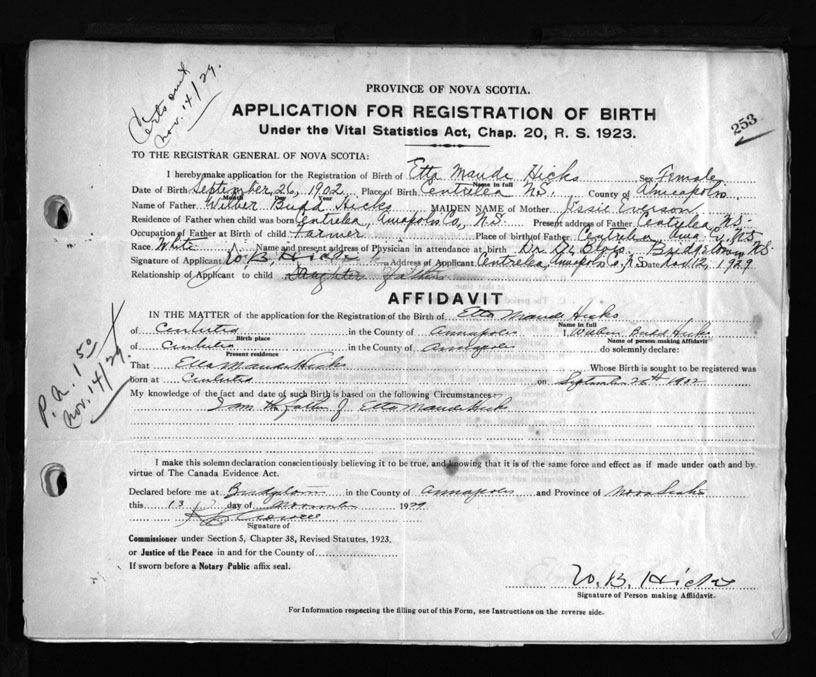 Certs out
Nov. 14/29.
253
PROVINCE OF NOVA SCOTIA.
APPLICATION FOR REGISTRATION OF BIRTH
Under the Vital Statistics Act, Chap. 20, R. S. 1923.
TO THE REGISTRAR GENERAL OF NOVA SCOTIA:
I hereby make application for the Registration of Birth of Etta Maude Hicks Sex Female
Name in full
Date of Birth September 26, 1902 Place of Birth Centrelea N.S. County of Annapolis
Month Day Year
Name of Father Wilber Budd Hicks MAIDEN NAME of Mother
Residence of Father when child was born Centrelea, Annapolis Co, N.S. Present address of Father Centrelea N.S.
Occupation of Father at Birth of child Farmer Place of birth of Father Centrelea Anna Co. N.S
Race White Name and present address of Physician in attendance at birth Dr Bridgetown N.S
Signature of Applicant W. B. Hicks Address of Applicant Centrelea, Annapolis Co. N.S Date Nov 12, 1929
Relationship of Applicant to child Daughter father
AFFIDAVIT
IN THE MATTER of the application for the Registration of the Birth of Etta Maude Hicks
Name in full
of Centrelea in the County of Annapolis I, Wilber Budd Hicks
Birth place Name of person making Affidavit
of Centrelea in the County of Annapolis do solemnly declare:
Present residence
That Etta Maude Hicks Whose Birth is sought to be registered was
born at Centrelea on September 26th 1902
P. A. 1 50
Nov. 14/29.
My knowledge of the fact and date of such Birth is based on the following Circumstances
I am the father of Etta Maude Hicks
I make this solemn declaration conscientiously believing it to be true, and knowing that it is of the same force and effect as if made under oath and by
virtue of The Canada Evidence Act.
Declared before me at Bridgetown in the County of Annapolis and Province of Nova Scotia
this 13 day of November 1929
Signature of
Commissioner under Section 5, Chapter 38, Revised Statutes, 1923,
or Justice of the Peace in and for the County of
If sworn before a Notary Public affix seal.
W. B. Hicks
Signature of Person making Affidavit.
For Information respecting the filling out of this Form, see Instructions on the reverse side.